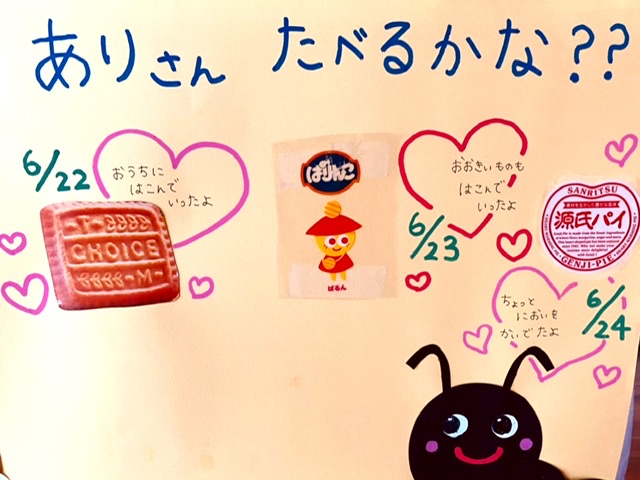 ありさん たべるかな??
6/22
おうちに
はこんで
いったよ
T
CHOICE
M
ぱりんこ
ぱりん
6/23
おおきいものも
はこんで
いったよ
SANRITSU
源氏パイ
GENJI-PIE
ちょっと
においを
かいでたよ
6/24